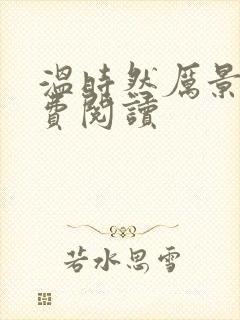 溫時然厲景
費閱讀
若水思雪